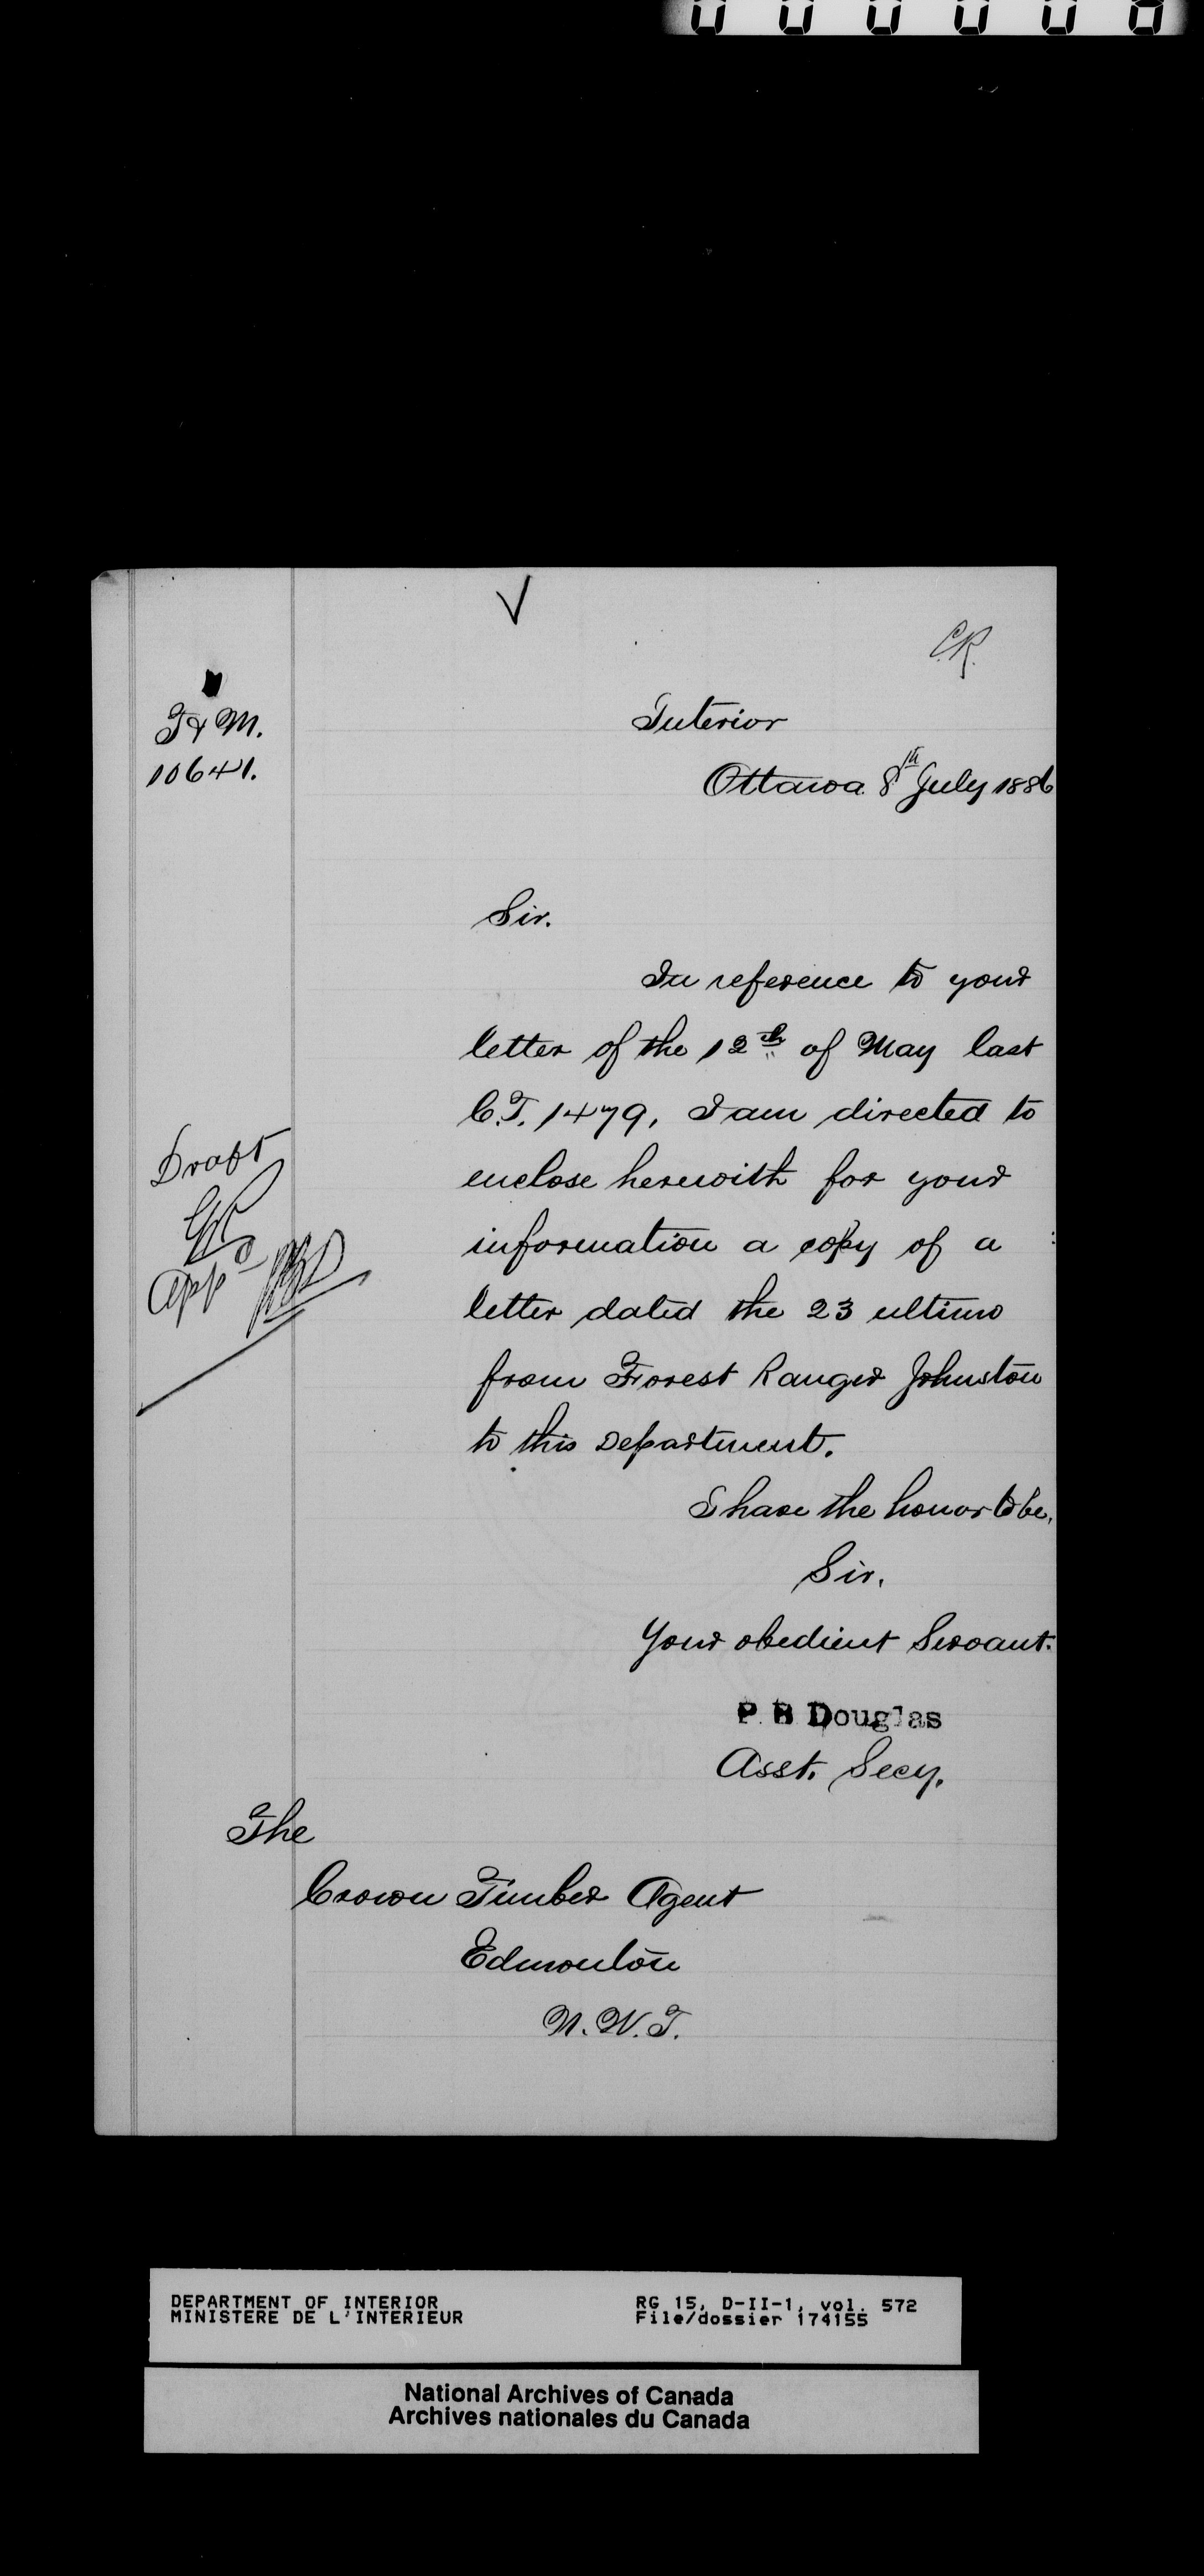 C.R.
T & M.
10641.
Interior
Ottawa 8th July 1886
Sir.
In reference to your
letter of the 12th of May last
C.T. 1479, I am directed to
enclose herewith for your
information a copy of a
letter dated the 23 ultimo
from Forest Ranger Johnston
to this Department.
Draft
Appd
I have the honor to be,
Sir,
Your obedient Servant.
P B Douglas
Asst. Secy.
The
Crown Timber Agent
Edmonton
N.W.T.
DEPARTMENT OF INTERIOR
MINISTERE DE L'INTERIEUR
RG 15, D-II-1, vol. 572
File/dossier 174155
National Archives of Canada
Archives nationales du Canada